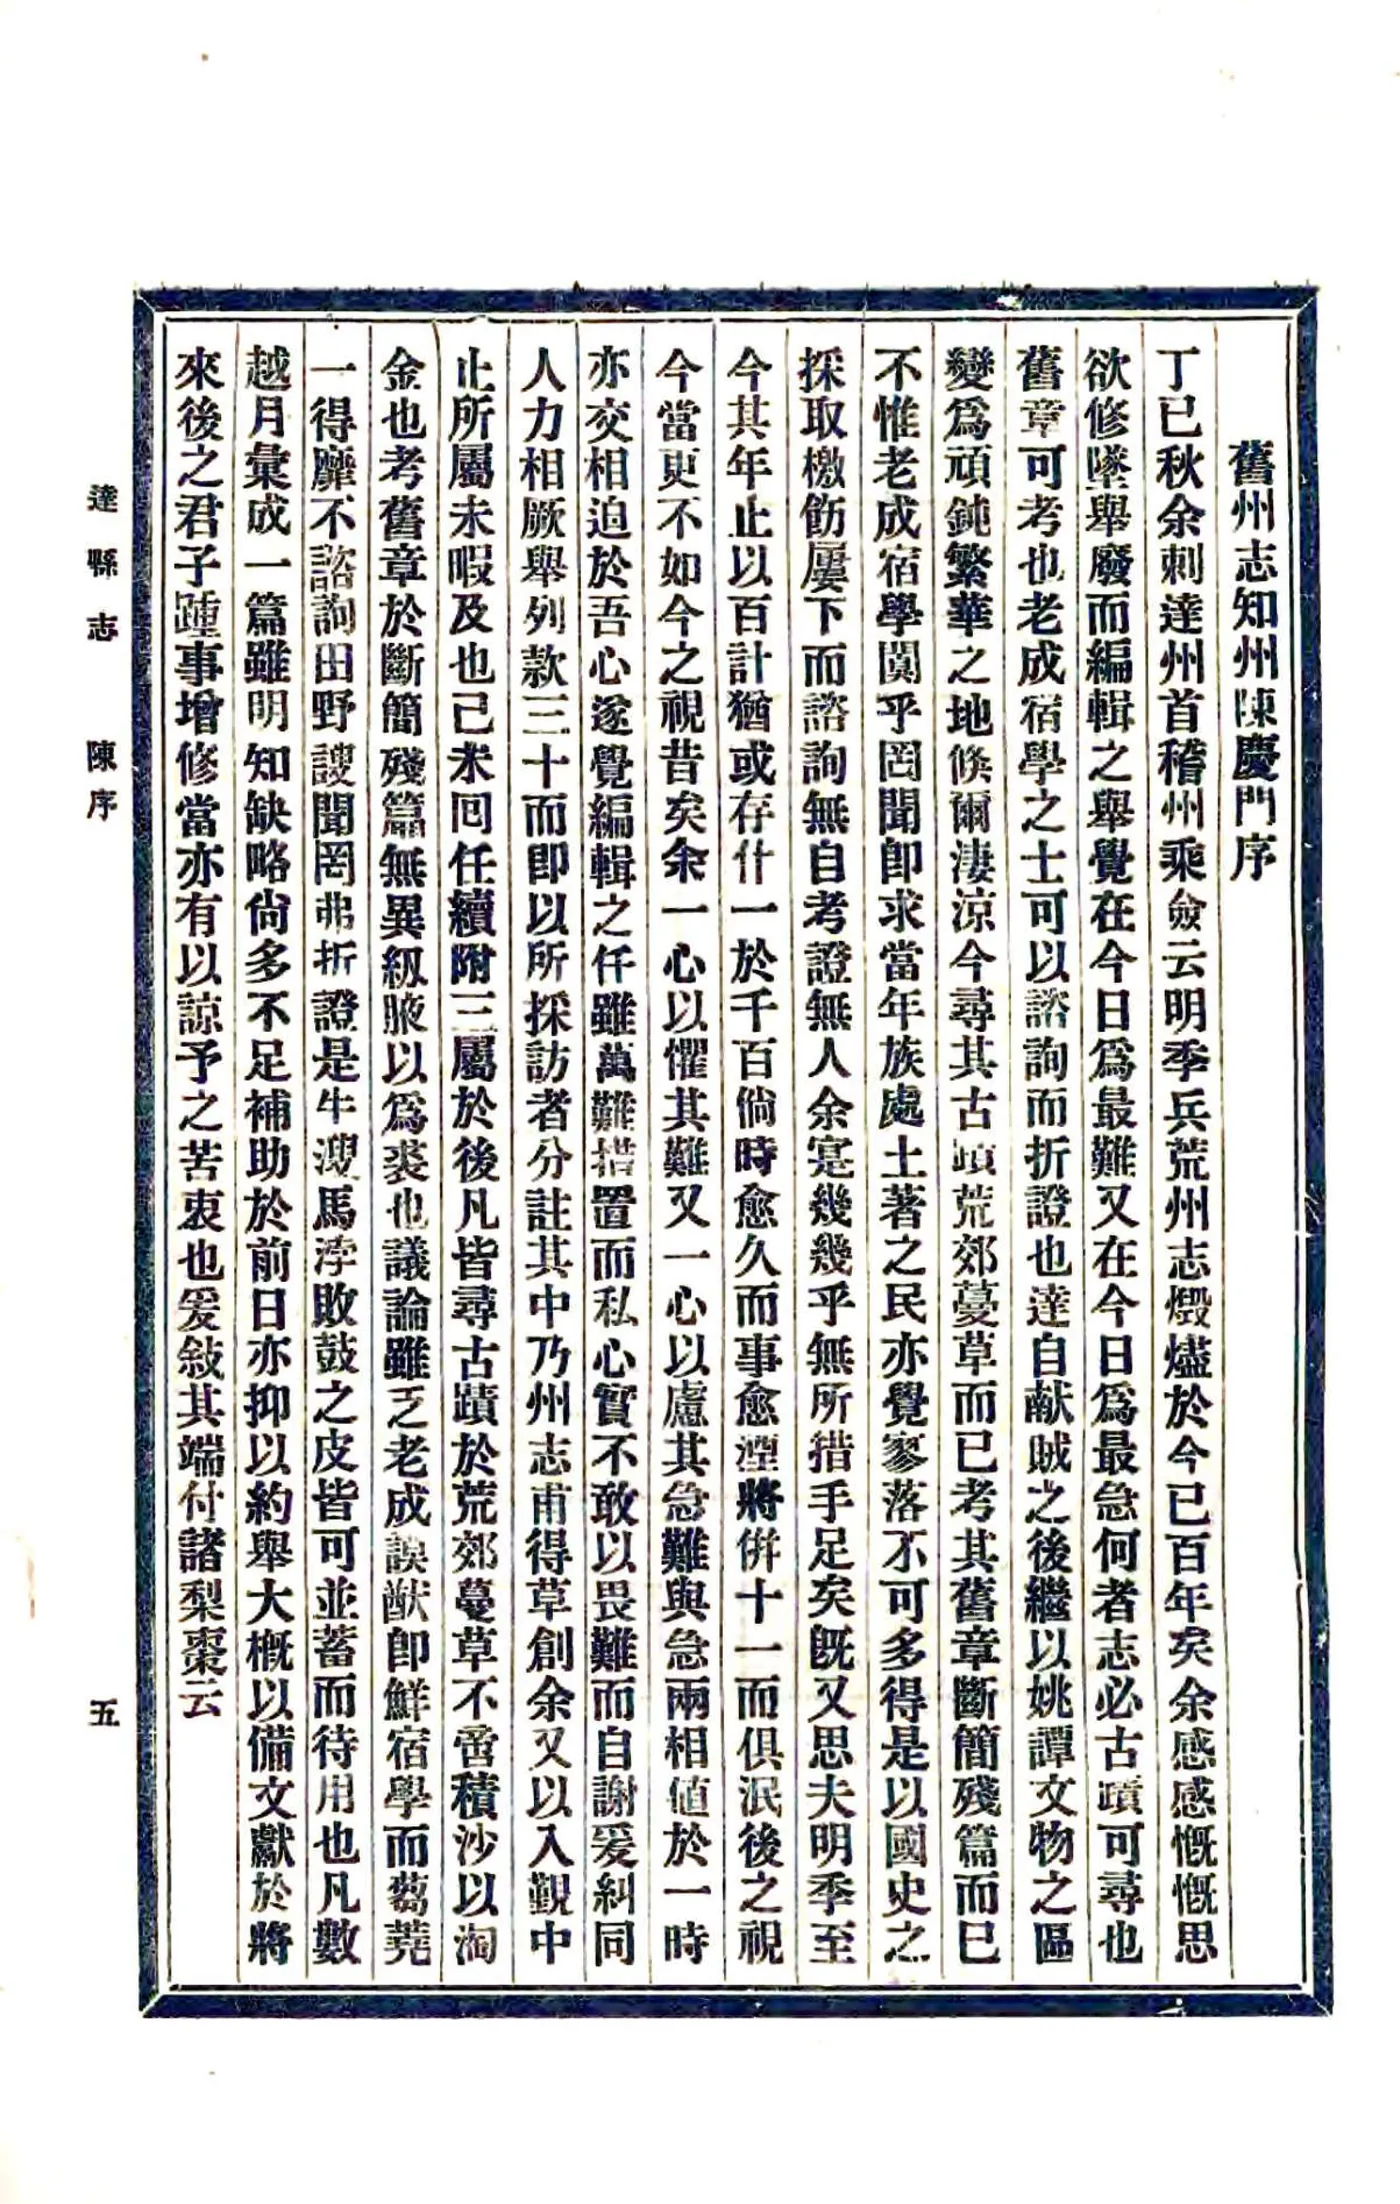 舊州志知州陳慶門序
丁巳秋余刺達州首稽州乘僉云明季兵荒州志燬燼於今已百年矣余感感慨慨思
欲修墜舉廢而編輯之舉覺在今日爲最難又在今日爲最急何者志必古蹟可尋也
舊章可考也老成宿學之士可以諮詢而折證也達自献賊之後繼以姚譚文物之區
變爲頑鈍繁華之地倐爾淒涼今尋其古蹟荒郊蔓草而已考其舊章斷簡殘篇而已
不惟老成宿學闃乎罔聞即求當年族處土著之民亦覺寥落不可多得是以國史之
採取檄飭屢下而諮詢無自考證無人余寔幾幾乎無所措手足矣旣又思夫明季至
今其年止以百計猶或存什一於千百倘時愈久而事愈湮將併十一而俱泯後之視
今當更不如今之視昔矣余一心以懼其難又一心以慮其急難與急兩相値於一時
亦交相迫於吾心遂覺編輯之仔雖萬難措置而私心實不敢以畏難而自謝爰糾同
人力相厥舉列款三十而即以所採訪者分註其中乃州志甫得草創余又以入覲中
止所屬未暇及也己未回任續附三屬於後凡皆尋古蹟於荒郊蔓草不啻積沙以淘
金也考舊章於斷簡殘篇無異紉腋以爲裘也議論雖乏老成謨猷即鮮宿學而蒭蕘
一得靡不諮詢田野謏聞罔弗折證是牛溲馬浡敗鼓之皮皆可並蓄而待用也凡數
越月彙成一篇雖明知缺略尙多不足補助於前日亦抑以約舉大槪以備文獻於將
來後之君子踵事增修當亦有以諒予之苦衷也爰敍其端付諸梨棗云
達縣志　陳序　五